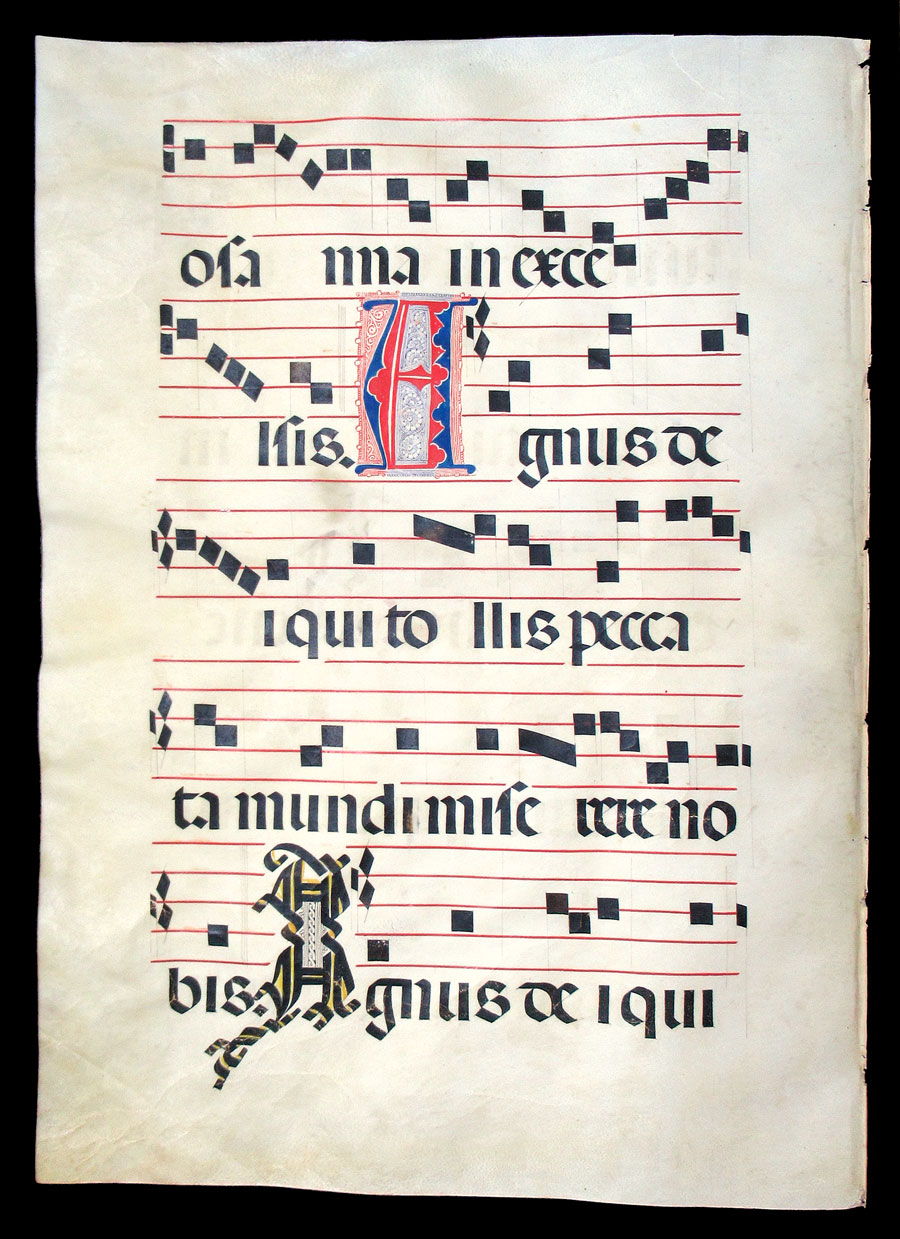 osa nna in exce
lsis. Agnus de
i qui to llis pecca
ta mundi mise rere no
bis. Agnus de i qui